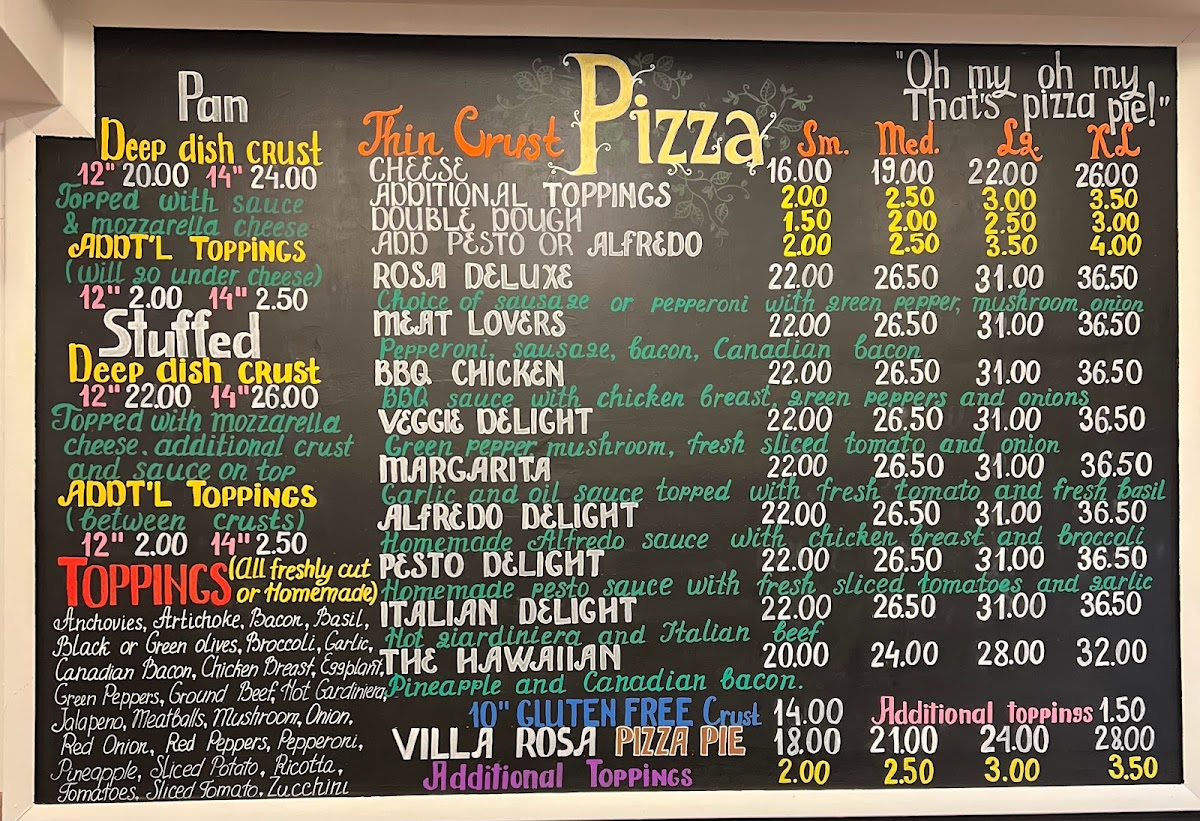 Pan
Deep dish crust
12" 20.00 14" 24.00
Topped with sauce
& mozzarella cheese
ADDT'L TOPPINGS
(will go under cheese)
12" 2.00 14" 2.50
Stuffed
Deep dish crust
12" 22.00 14" 26.00
Topped with mozzarella
cheese. additional crust
and sauce on top
ADDT'L TOPPINGS
(between crusts)
12" 2.00 14" 2.50
TOPPINGS (All freshly cut
or Homemade)
Anchovies, Artichoke, Bacon, Basil,
Black or Green olives, Broccoli, Garlic,
Canadian Bacon, Chicken Breast, Eggplant,
Green Peppers, Ground Beef, Hot Gardiniera,
Jalapeno, Meatballs, Mushroom, Onion,
Red Onion, Red Peppers, Pepperoni,
Pineapple, Sliced Potato, Ricotta,
Tomatoes, Sliced Tomato, Zucchini
"Oh my oh my
That's pizza pie!"
Thin Crust Pizza Sm. Med. Lg XL
CHEESE 16.00 19.00 22.00 26.00
ADDITIONAL TOPPINGS 2.00 2.50 3.00 3.50
DOUBLE DOUGH 1.50 2.00 2.50 3.00
ADD PESTO OR ALFREDO 2.00 2.50 3.50 4.00
ROSA DELUXE 22.00 26.50 31.00 36.50
Choice of sausage or pepperoni with green pepper, mushroom, onion
MEAT LOVERS 22.00 26.50 31.00 36.50
Pepperoni, sausage, bacon, Canadian bacon
BBQ CHICKEN 22.00 26.50 31.00 36.50
BBQ sauce with chicken breast, green peppers and onions
VEGGIE DELIGHT 22.00 26.50 31.00 36.50
Green pepper mushroom, fresh sliced tomato and onion
MARGARITA 22.00 26.50 31.00 36.50
Garlic and oil sauce topped with fresh tomato and fresh basil
ALFREDO DELIGHT 22.00 26.50 31.00 36.50
Homemade Alfredo sauce with chicken breast and broccoli
PESTO DELIGHT 22.00 26.50 31.00 36.50
Homemade pesto sauce with fresh sliced tomatoes and garlic
ITALIAN DELIGHT 22.00 26.50 31.00 36.50
Hot giardiniera and Italian beef
THE HAWAIIAN 20.00 24.00 28.00 32.00
Pineapple and Canadian bacon.
10" GLUTEN FREE Crust 14.00 Additional toppings 1.50
VILLA ROSA PIZZA PIE 18.00 21.00 24.00 28.00
Additional Toppings 2.00 2.50 3.00 3.50